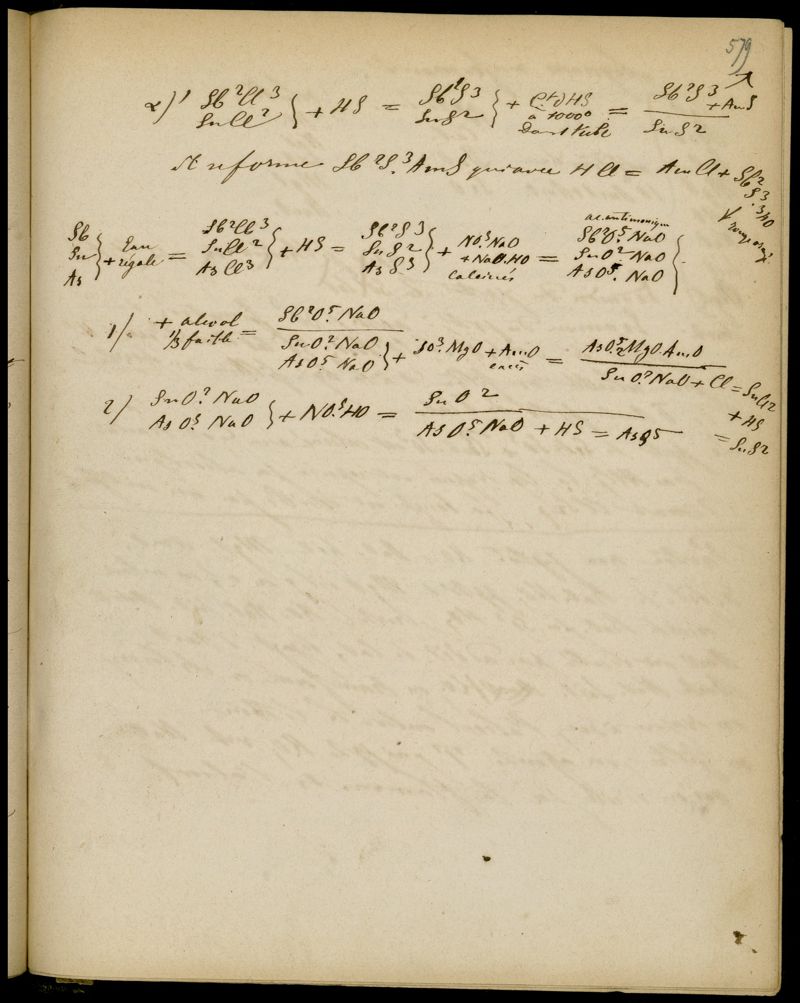 579
2)' Sb²Cl³ SnCl² } + HS = Sb²S³ SnS² } + HS à 1000° = Sb²S³ + AmS / SnS²
Il reforme Sb²S³.AmS qui avec HCl = AmCl + Sb²S³.3HO
Sb Sn As } + Eau régale = Sb²Cl³ SnCl² AsCl³ } + HS = Sb²S³ SnS² AsS³ } + NO⁵.NaO + NaO.HO calcinés = ac. antimonique Sb²O⁵.NaO SnO².NaO AsO⁵.NaO }
1) + alcool 1/3 faible = Sb²O⁵.NaO / SnO².NaO AsO⁵.NaO } + SO³.MgO + AmO excès = AsO⁵.2MgO.AmO / SnO².NaO + Cl = SnCl² + HS = SnS²
2) SnO².NaO AsO⁵.NaO } + NO⁵.HO = SnO² / AsO⁵.NaO + HS = AsS⁵